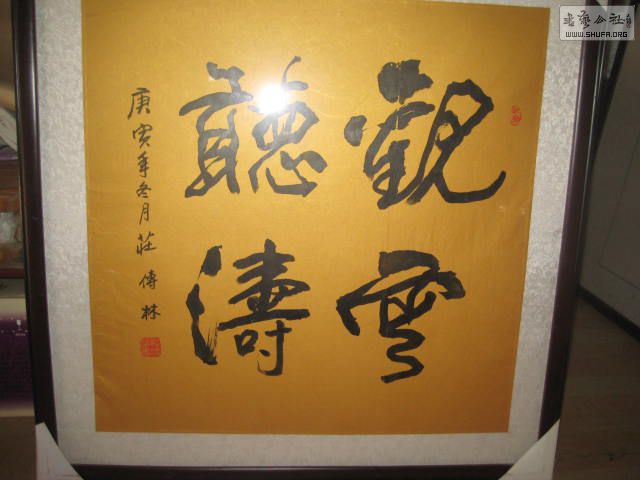 觀雲
聽濤
庚寅年冬月莊傳林
書藝公社
WWW.SHUFA.ORG